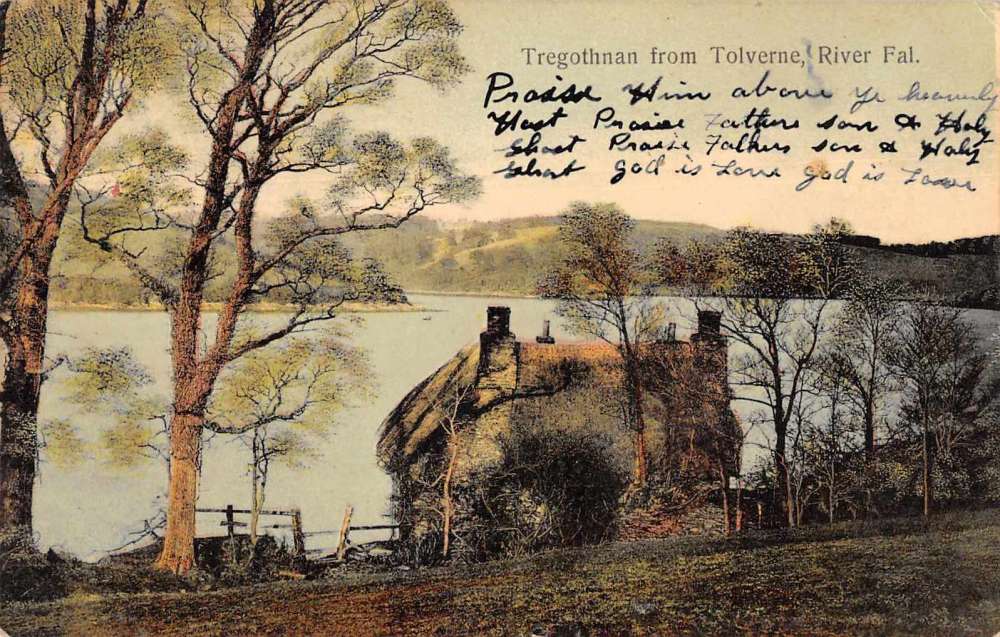 Tregothnan from Tolverne, River Fal.
Praise Him above ye heavenly
Host Praise Father son & Holy
Ghost Praise Father son & Holy
Ghost God is Love God is Love